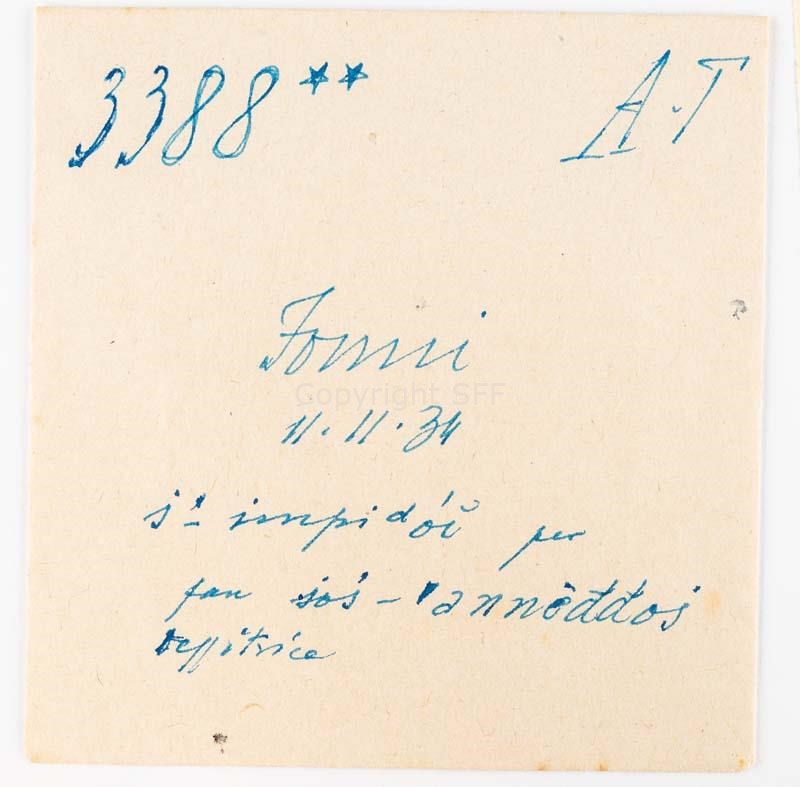 3388** A.T
Fonni
11.11.34
s'impidóṅ per
far sos - annèđđos
tessitrice
Copyright SFF